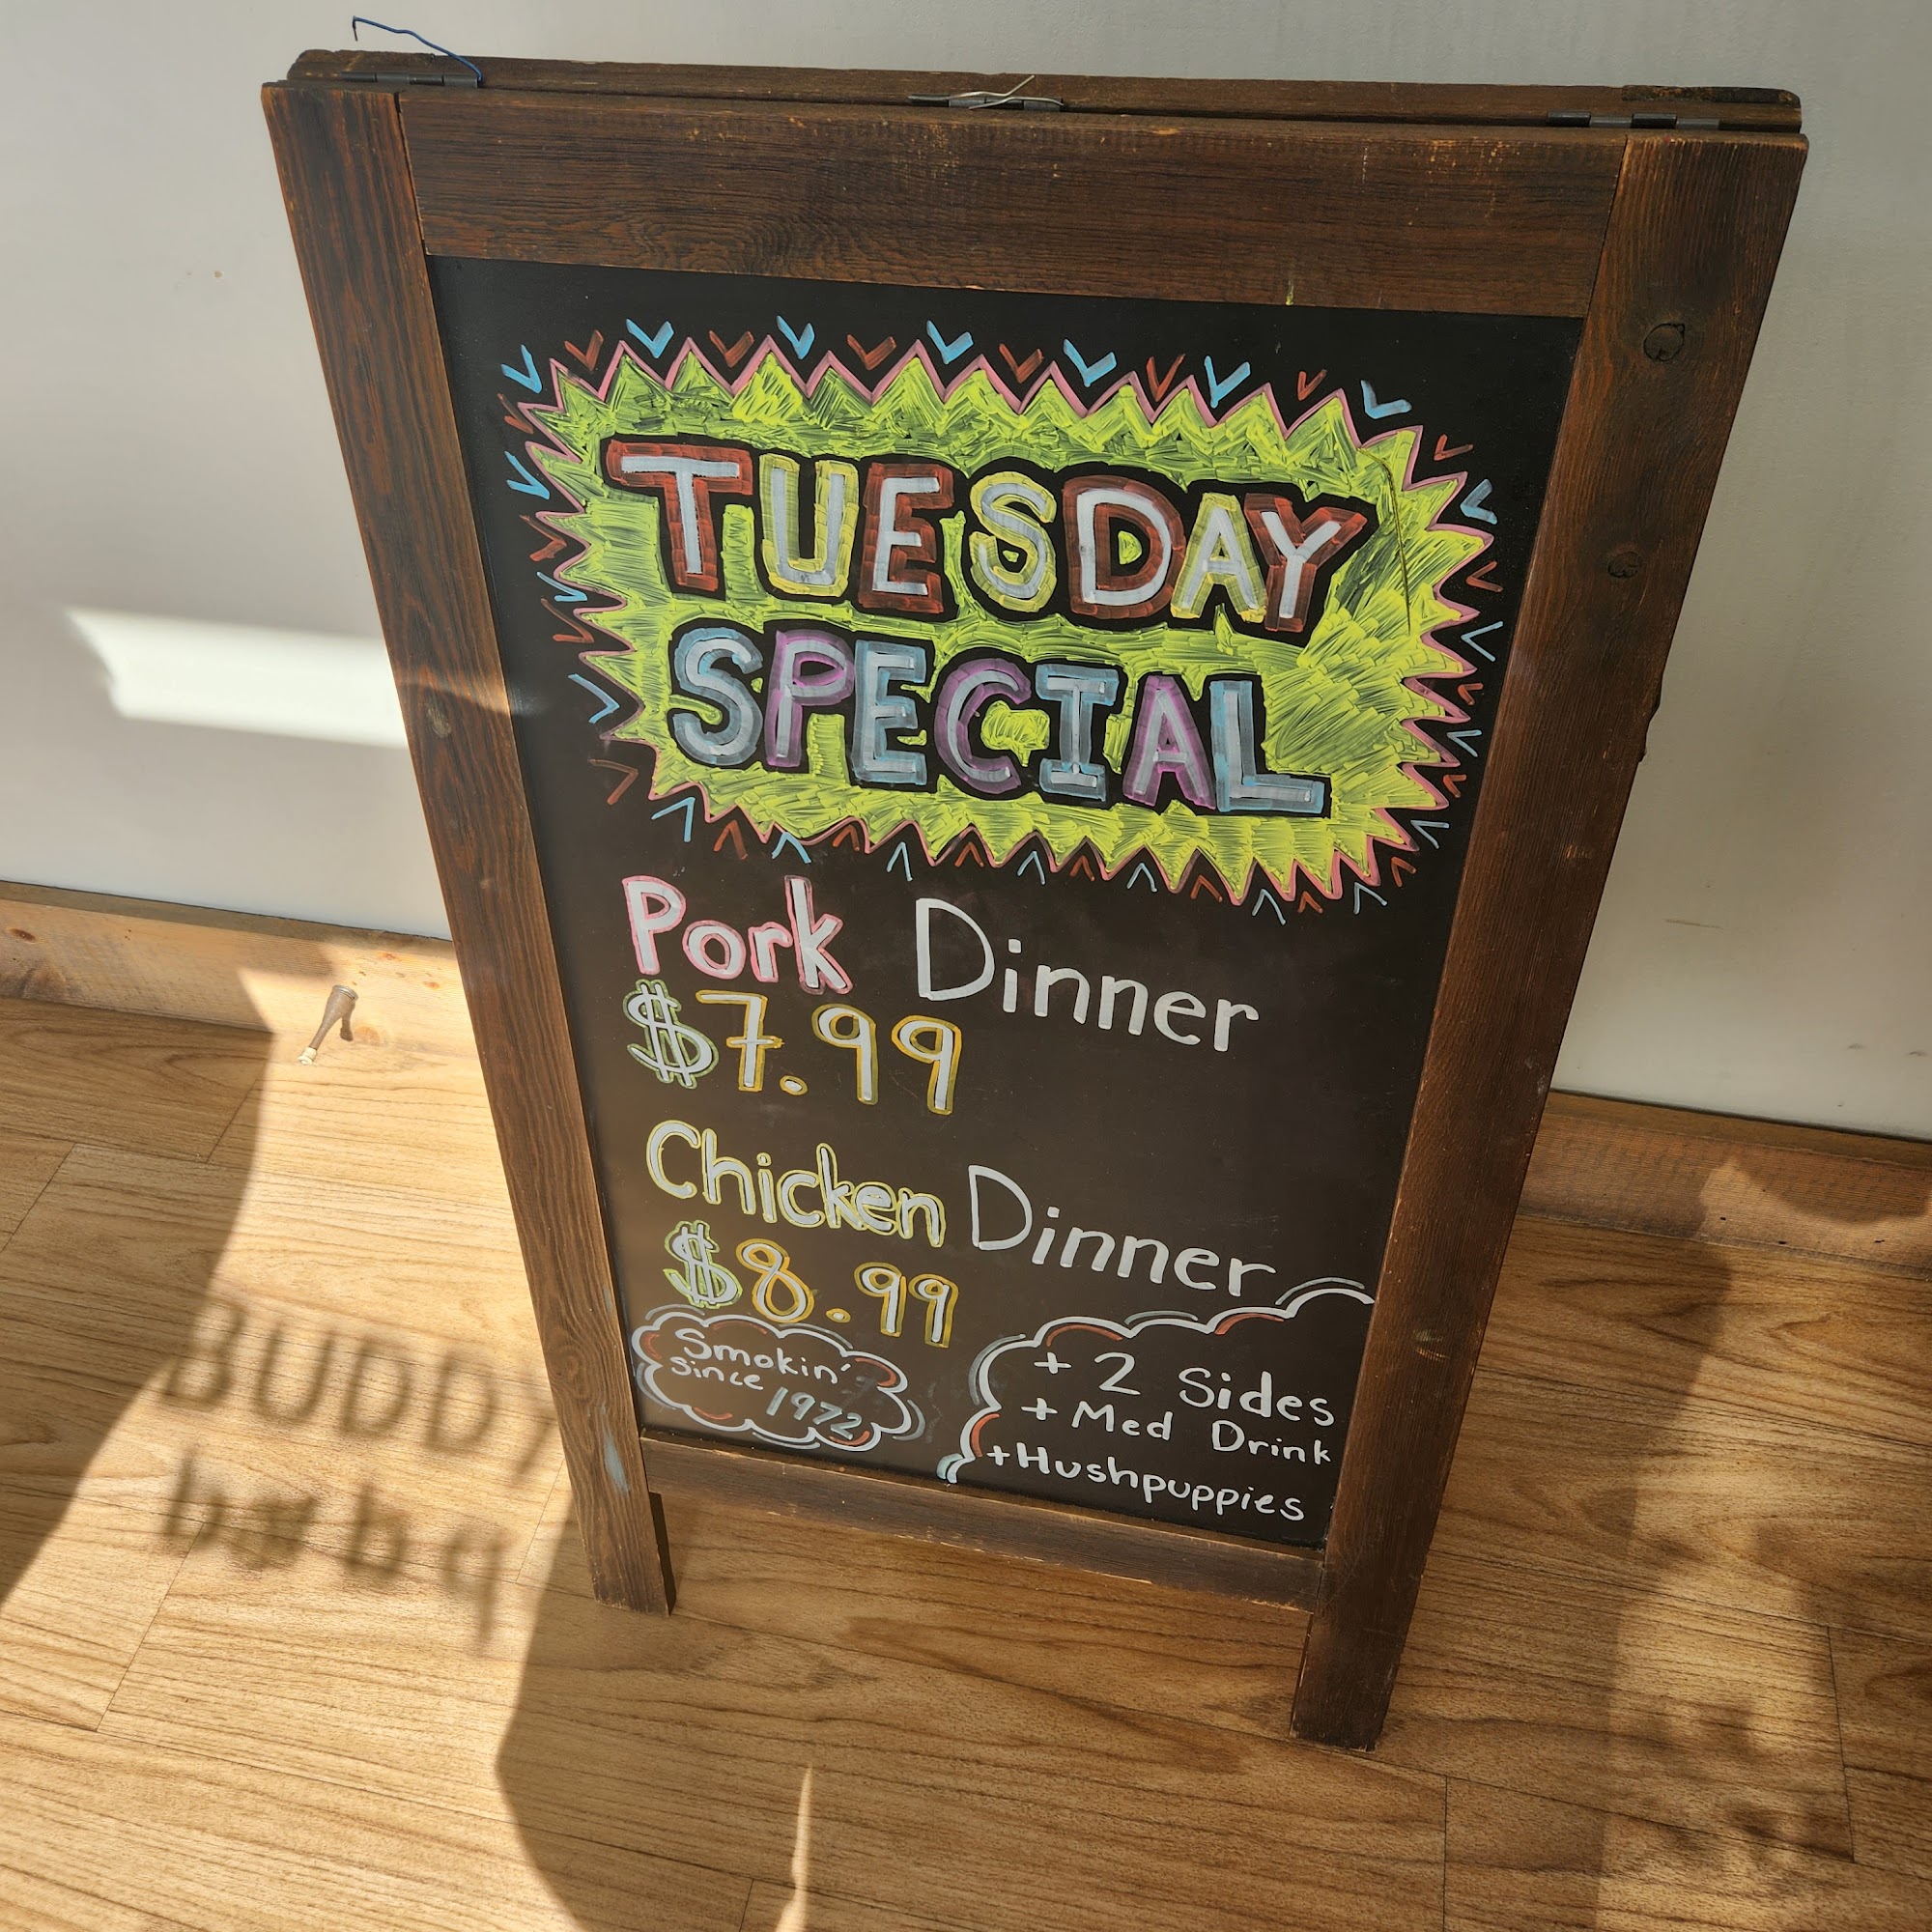 TUESDAY
SPECIAL
Pork Dinner
$7.99
Chicken Dinner
$8.99
Smokin'
since 1972
+ 2 Sides
+ Med Drink
+Hushpuppies
BUDDY